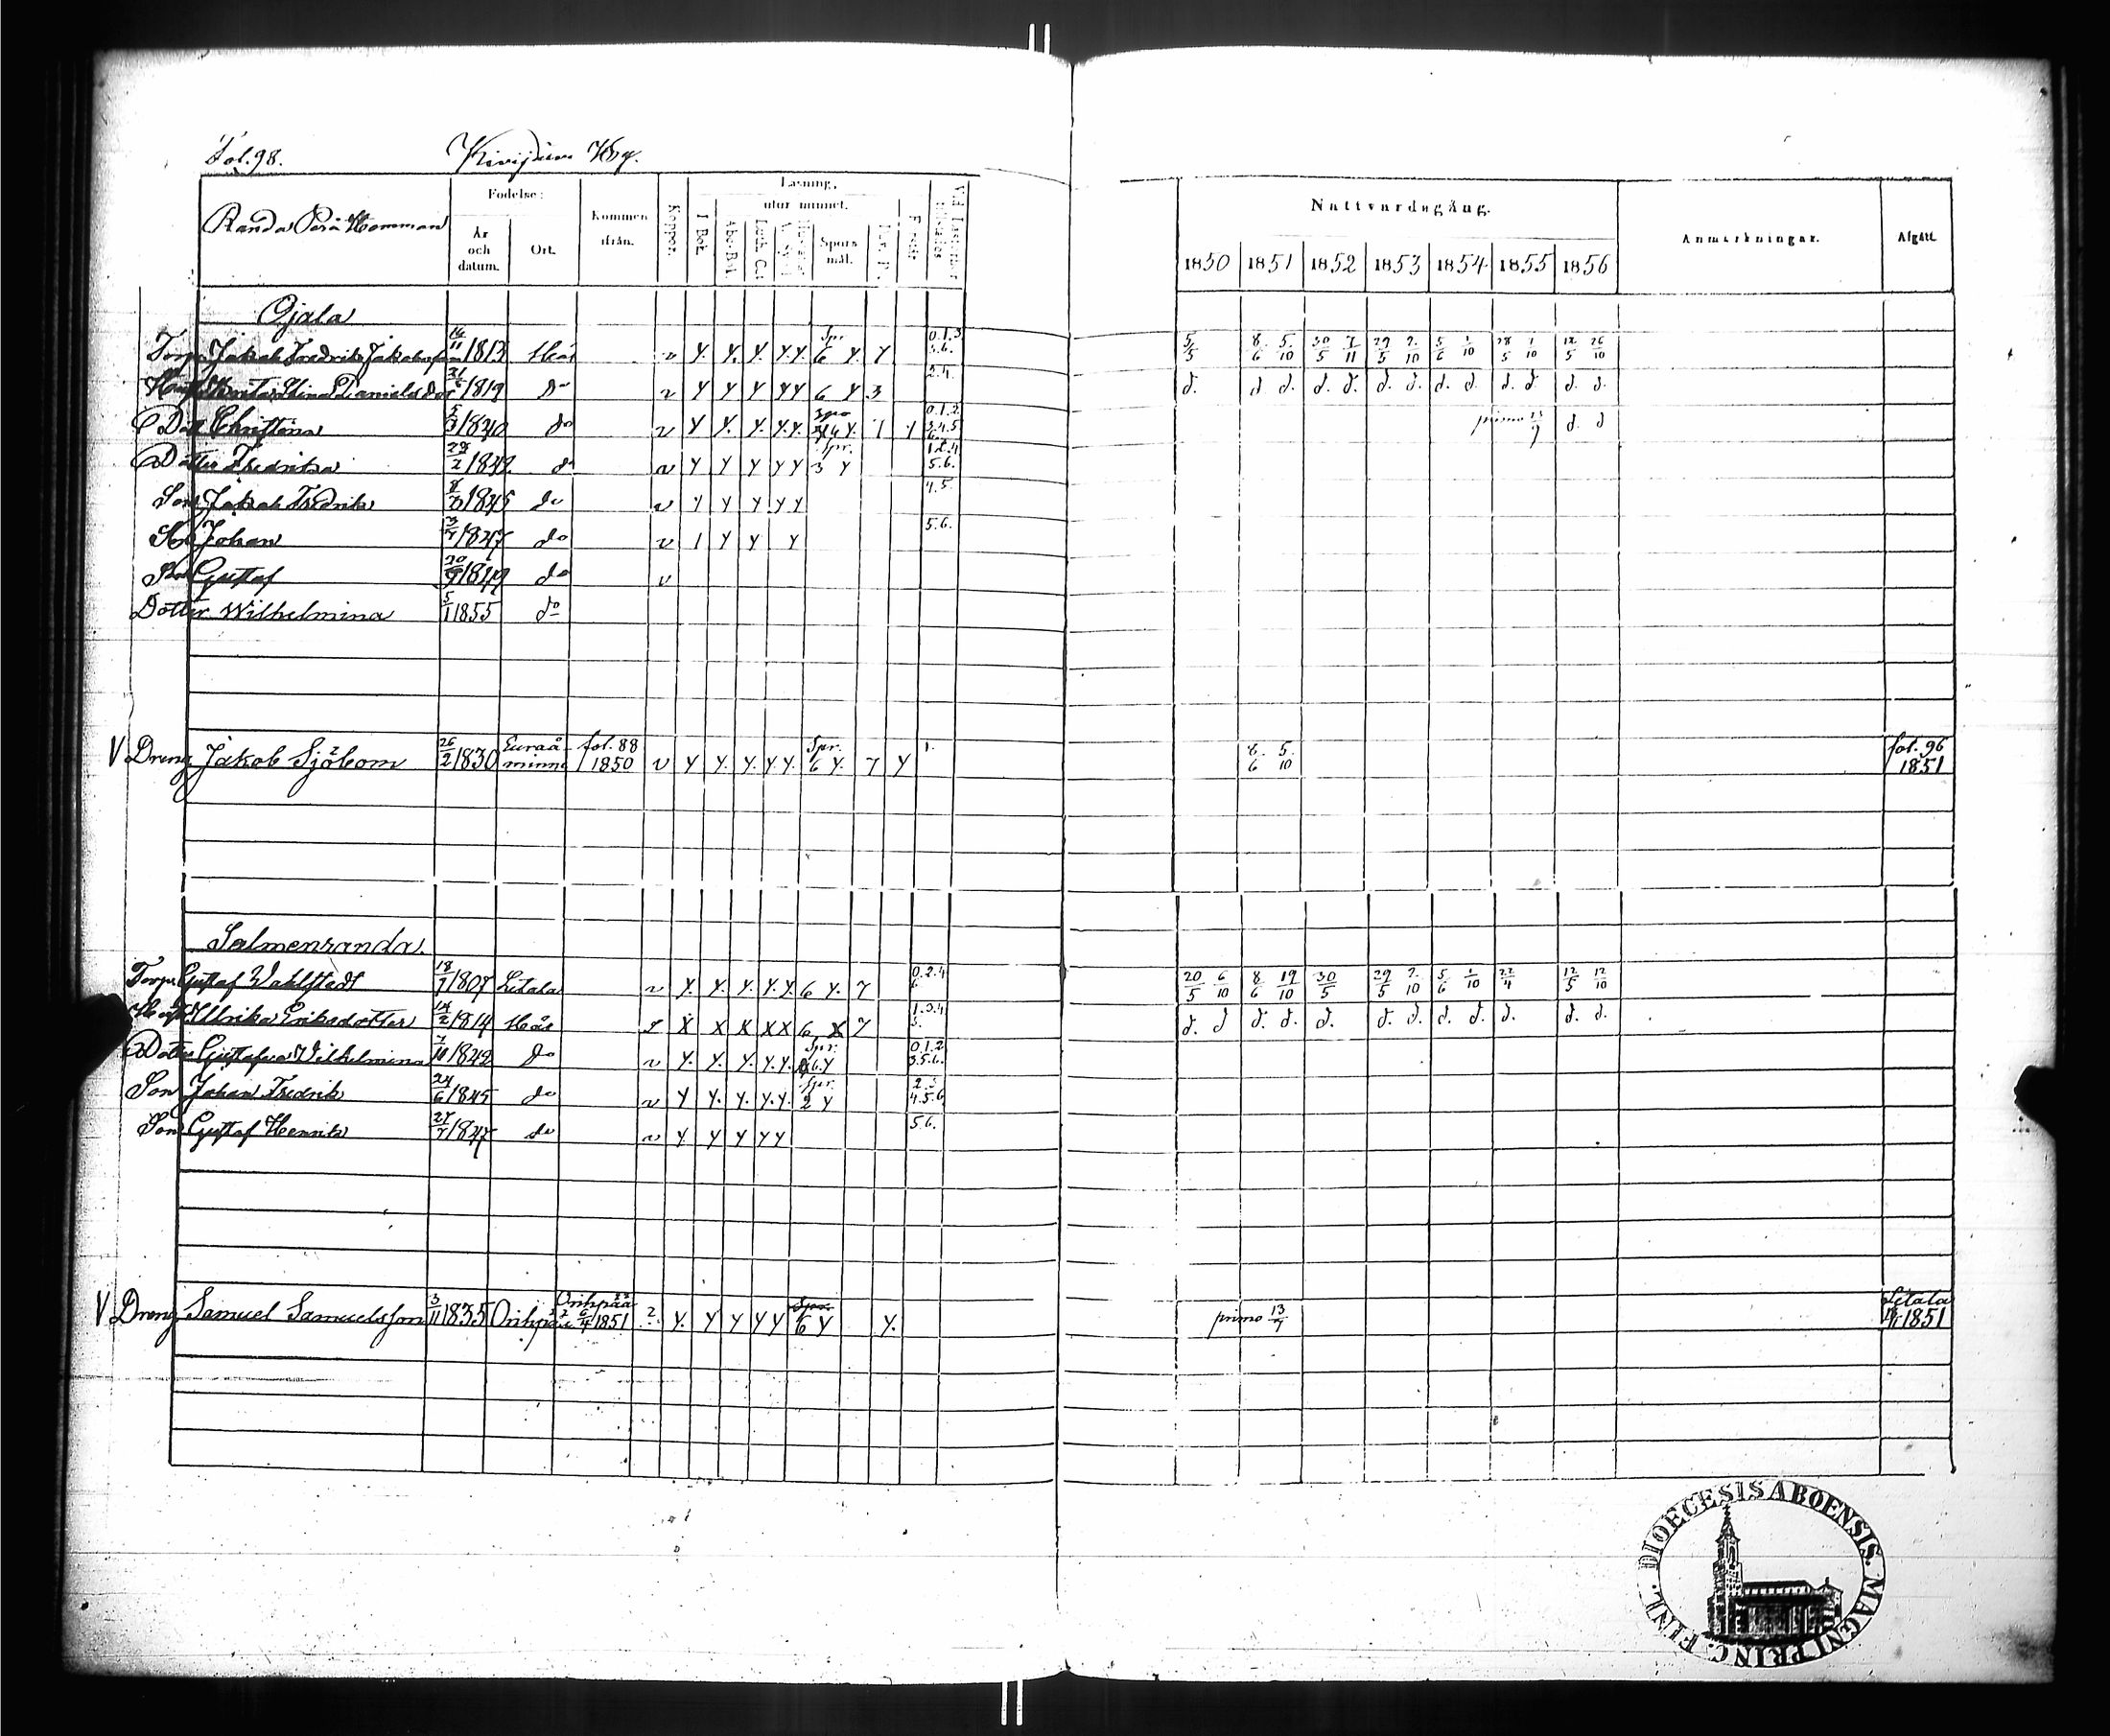 Fol. 98.
Randa Perä Hemman
Födelse:
År och datum.
Ort.
Kommen ifrån.
Koppor.
Läsning,
utur minnet.
I Bok.
Abc-Bok.
Luth. C.
Spörsmål.
Nattvardsgång.
1850 1851 1852 1853 1854 1855 1856
Anmärkningar.
Afgått.
Ojala
Torp. Jakob Fredrik Jakobsson 16/11 1813 v y. y. y. y.y. Spr 6 y. 7 0.1.3 5.6. 5/5 8/6 5/10 30/5 7/11 29/5 2/10 5/6 1/10 28/5 1/10 12/5 26/10
Danielsdor 1819 do v y y y y y 6 y 3 2.4. d. d d. d. d. d. d. d. d. d. d d. d.
Dott Christina 5/3 1840 do v y y. y. y.y. 0.1.2 3.4.5 6. primo 15/7 d. d
Dotter Fredrika 1842 do v y y y y y Spr. 3 y 1.2.4 5.6.
Son Jakob Fredrik 1845 do v y y y y y 4.5.
Son Johan 1847 do v 1 y y y 5.6.
Son Gustaf 1849 do v
Dotter Wilhelmina 5/1 1855 do
V Dreng Jakob Sjöbom 26/2 1830 Euraåminne fol. 88 1850 v y y. y. y.y. Spr. 6 y. 7 y 1. 8/6 5/10 fol. 96 1851
Salmenranda.
Torp. Gustaf Wahlstedt 18/7 1807 Letala v y. y. y. y.y. 6 y. 7 0.2.4 6 20/5 6/10 8/6 19/10 30/5 29/5 2/10 5/6 1/10 22/4 12/5 12/10
Ulrika Eriksdotter 14/2 1814 x x x x x 6 x 7 1.3.4 5. d. d d. d. d. d. d. d. d. d. d. d.
Dotter Gustafva Wilhelmina 1842 do v y. y. y. y.y. Spr. 6.y 0.1.2 3.5.6.
Son Johan Fredrik 24/6 1845 do v y y. y. y.y. Spr. 2 y 2.3 4.5.6
Son Gustaf Henrik 27/7 1847 do v y. y y y y 5.6.
V Dreng Samuel Samuelsson 3/11 1835 Orihpää Orihpää 6/4 1851 ? y. y y y y Spr. 6 y y. primo 13/7 Letala 1851
FINL. DIOECESIS ABOENSIS. MAGNI PRINC.